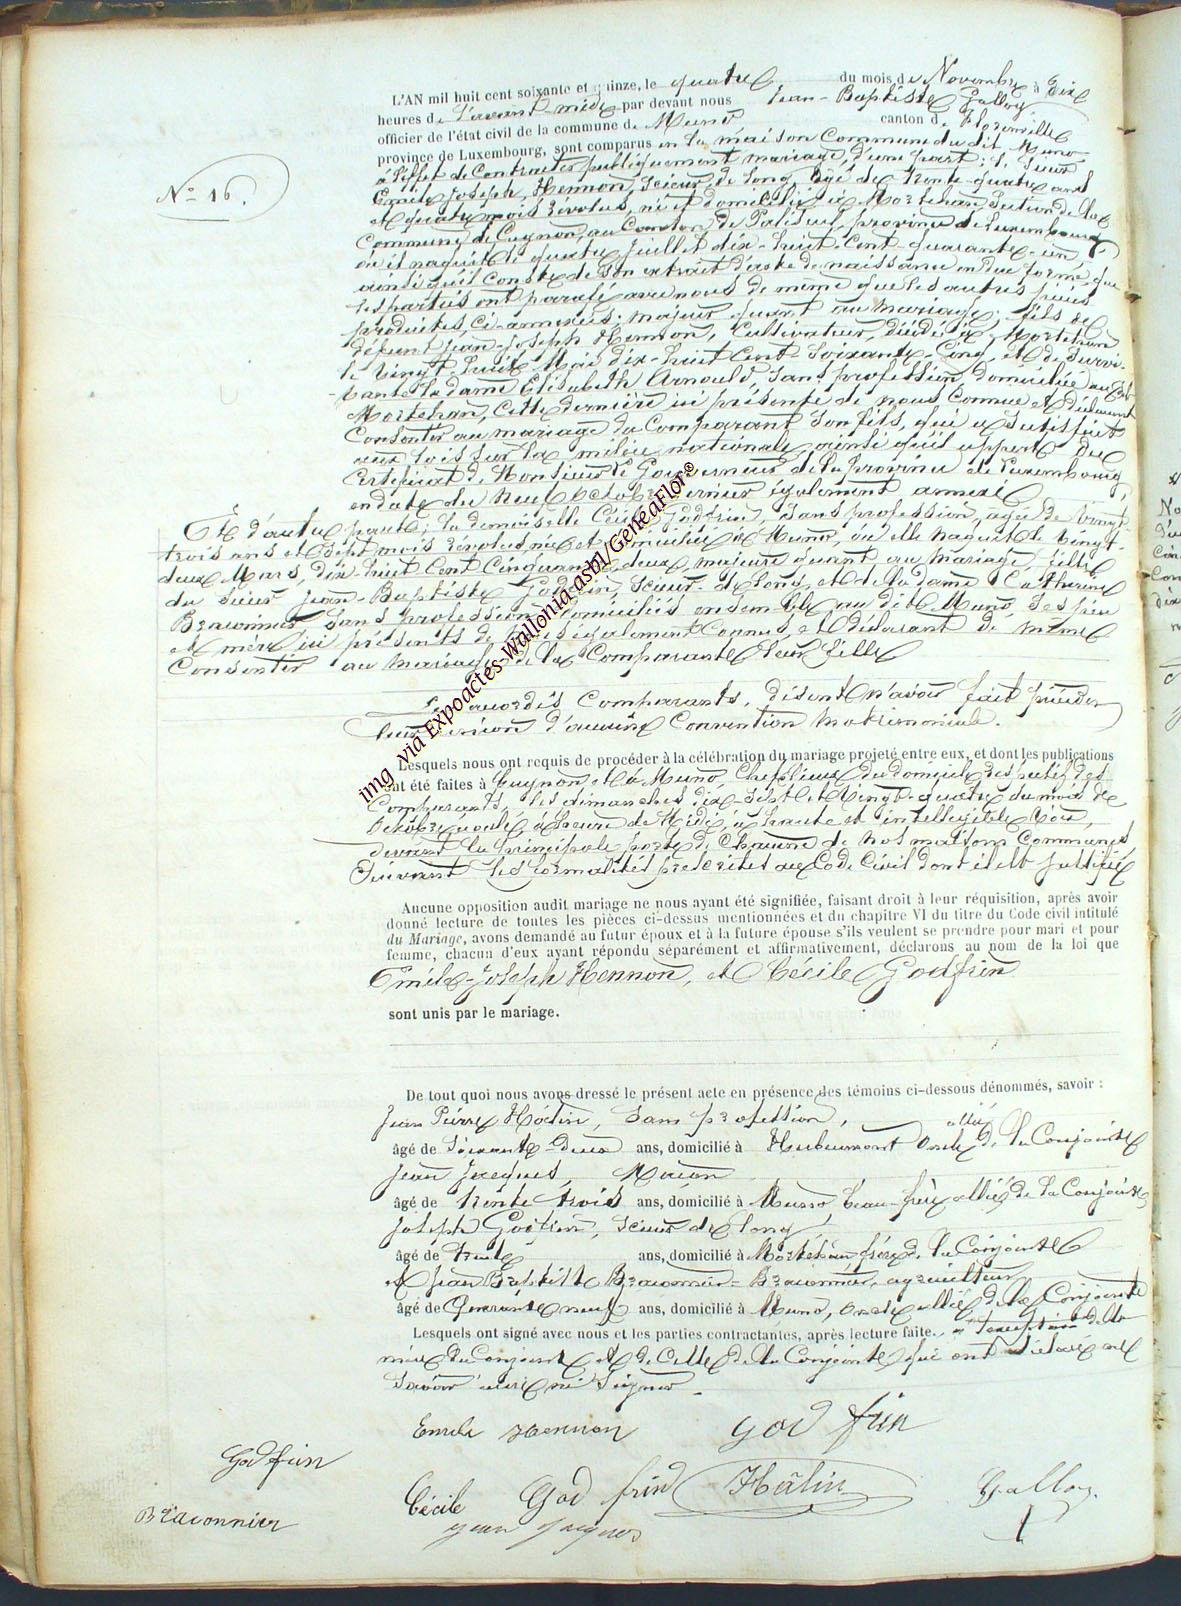 L'AN mil huit cent soixante et quinze, le quatre du mois de Novembre à Dix
heures de l'avant-midi par devant nous Jean-Baptiste Galloy
officier de l'état civil de la commune de Muno canton de Florenville
province de Luxembourg, sont comparus en la maison Commune du dit Muno
à l'effet de Contracter publiquement mariage, d'une part: le Sieur
Emile Joseph, Hennon, Scieur de long, âgé de Trente-quatre ans
et quatre mois révolus, né et domicilié à Mortehan Section de la
Commune de Cugnon, au Canton de Paliseul, province de Luxembourg
où il naquit le quatre Juillet dix-huit-Cent-quarante-un
ainsi qu'il Conste de son extrait d'acte de naissance en due forme, que
les parties ont parafé avec nous de même que les autres pièces
produites, ci-annexées; majeur quant au mariage; fils de
défunt Jean-Joseph Hennon, Cultivateur, décédé à Mortehan
le vingt-huit Mai dix-huit Cent Soixante-Cinq, et de Survi-
-vante la dame Elisabeth Arnould, Sans profession, domiciliée au dit
Mortehan, cette dernière ici présente de nous Connue et déclarant
Consentir au mariage du Comparant Son fils, qui a Satisfait
aux lois sur la milice nationale, ainsi qu'il appert du
Certificat de Monsieur le Gouverneur de la province de Luxembourg,
en date du neuf octobre dernier également annexé
N° 16.
Et d'autre part; la demoiselle Cécile Godfrin, Sans profession, âgée de vingt-
trois ans et Sept mois révolus, née et domiciliée à Muno, où elle naquit le vingt-
deux Mars, dix-huit Cent Cinquante-deux, majeure quant au mariage fille
du Sieur Jean-Baptiste Godfrin, Scieur-de-long, et de la dame Catherine
Braconnier Sans profession, domiciliés ensemble au dit Muno, Ses père
et mère ici présents de nous également Connus, et déclarant de même
Consentir au mariage de la Comparante leur fille
Les accordés Comparants, disent n'avoir fait précéder
leur union d'aucune Convention Matrimoniale.
Lesquels nous ont requis de procéder à la célébration du mariage projeté entre eux, et dont les publications
ont été faites à Cugnon et à Muno, Chefs lieux du domicile des parties des
Comparants, les dimanches dix-Sept et Vingt-quatre du mois de
Octobre écoulé, à l'heure de Midi, à haute et intelligible Voix,
devant la principale porte de Chacune de nos maisons Communes
Suivant les formalités prescrites au Code Civil dont il est Justifié
Aucune opposition audit mariage ne nous ayant été signifiée, faisant droit à leur réquisition, après avoir
donné lecture de toutes les pièces ci-dessus mentionnées et du chapitre VI du titre du Code civil intitulé
du Mariage, avons demandé au futur époux et à la future épouse s'ils veulent se prendre pour mari et pour
femme, chacun d'eux ayant répondu séparément et affirmativement, déclarons au nom de la loi que
Emile-Joseph Hennon, et Cécile Godfrin
sont unis par le mariage.
De tout quoi nous avons dressé le présent acte en présence des témoins ci-dessous dénommés, savoir :
Jean Pierre Hâtin, Sans profession, allié
âgé de Soixante-Deux ans, domicilié à Herbeumont Oncle de la Conjointe
Jean Jacques, Maçon
âgé de Trente Trois ans, domicilié à Muno beau-frère allié de la Conjointe
Joseph Godfrin, Scieur de long
âgé de Trente ans, domicilié à Mortehan frère de la Conjointe
et Jean Baptiste Braconnier-Braconnier, agriculteur
âgé de Quarante neuf ans, domicilié à Muno, Oncle allié de la Conjointe
Lesquels ont signé avec nous et les parties contractantes, après lecture faite. à l'exception de la
mère du Conjoint et de Celle de la Conjointe qui ont déclaré ne
Savoir écrire ni Signer.
Emile Hennon god frin
Godfrin
Cécile God frind Hâtin Galloy.
Braconnier
jean jacques
img via Expoactes-Wallonia asbl/GeneaFlor©